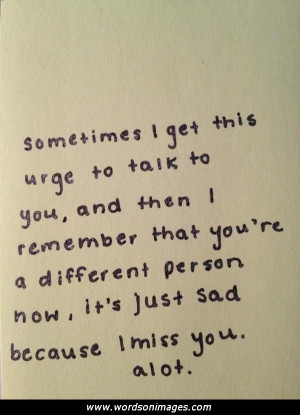 sometimes I get this
urge to talk to
you, and then I
remember that you're
a different person
now, it's just sad
because I miss you.
alot.
www.wordsonimages.com